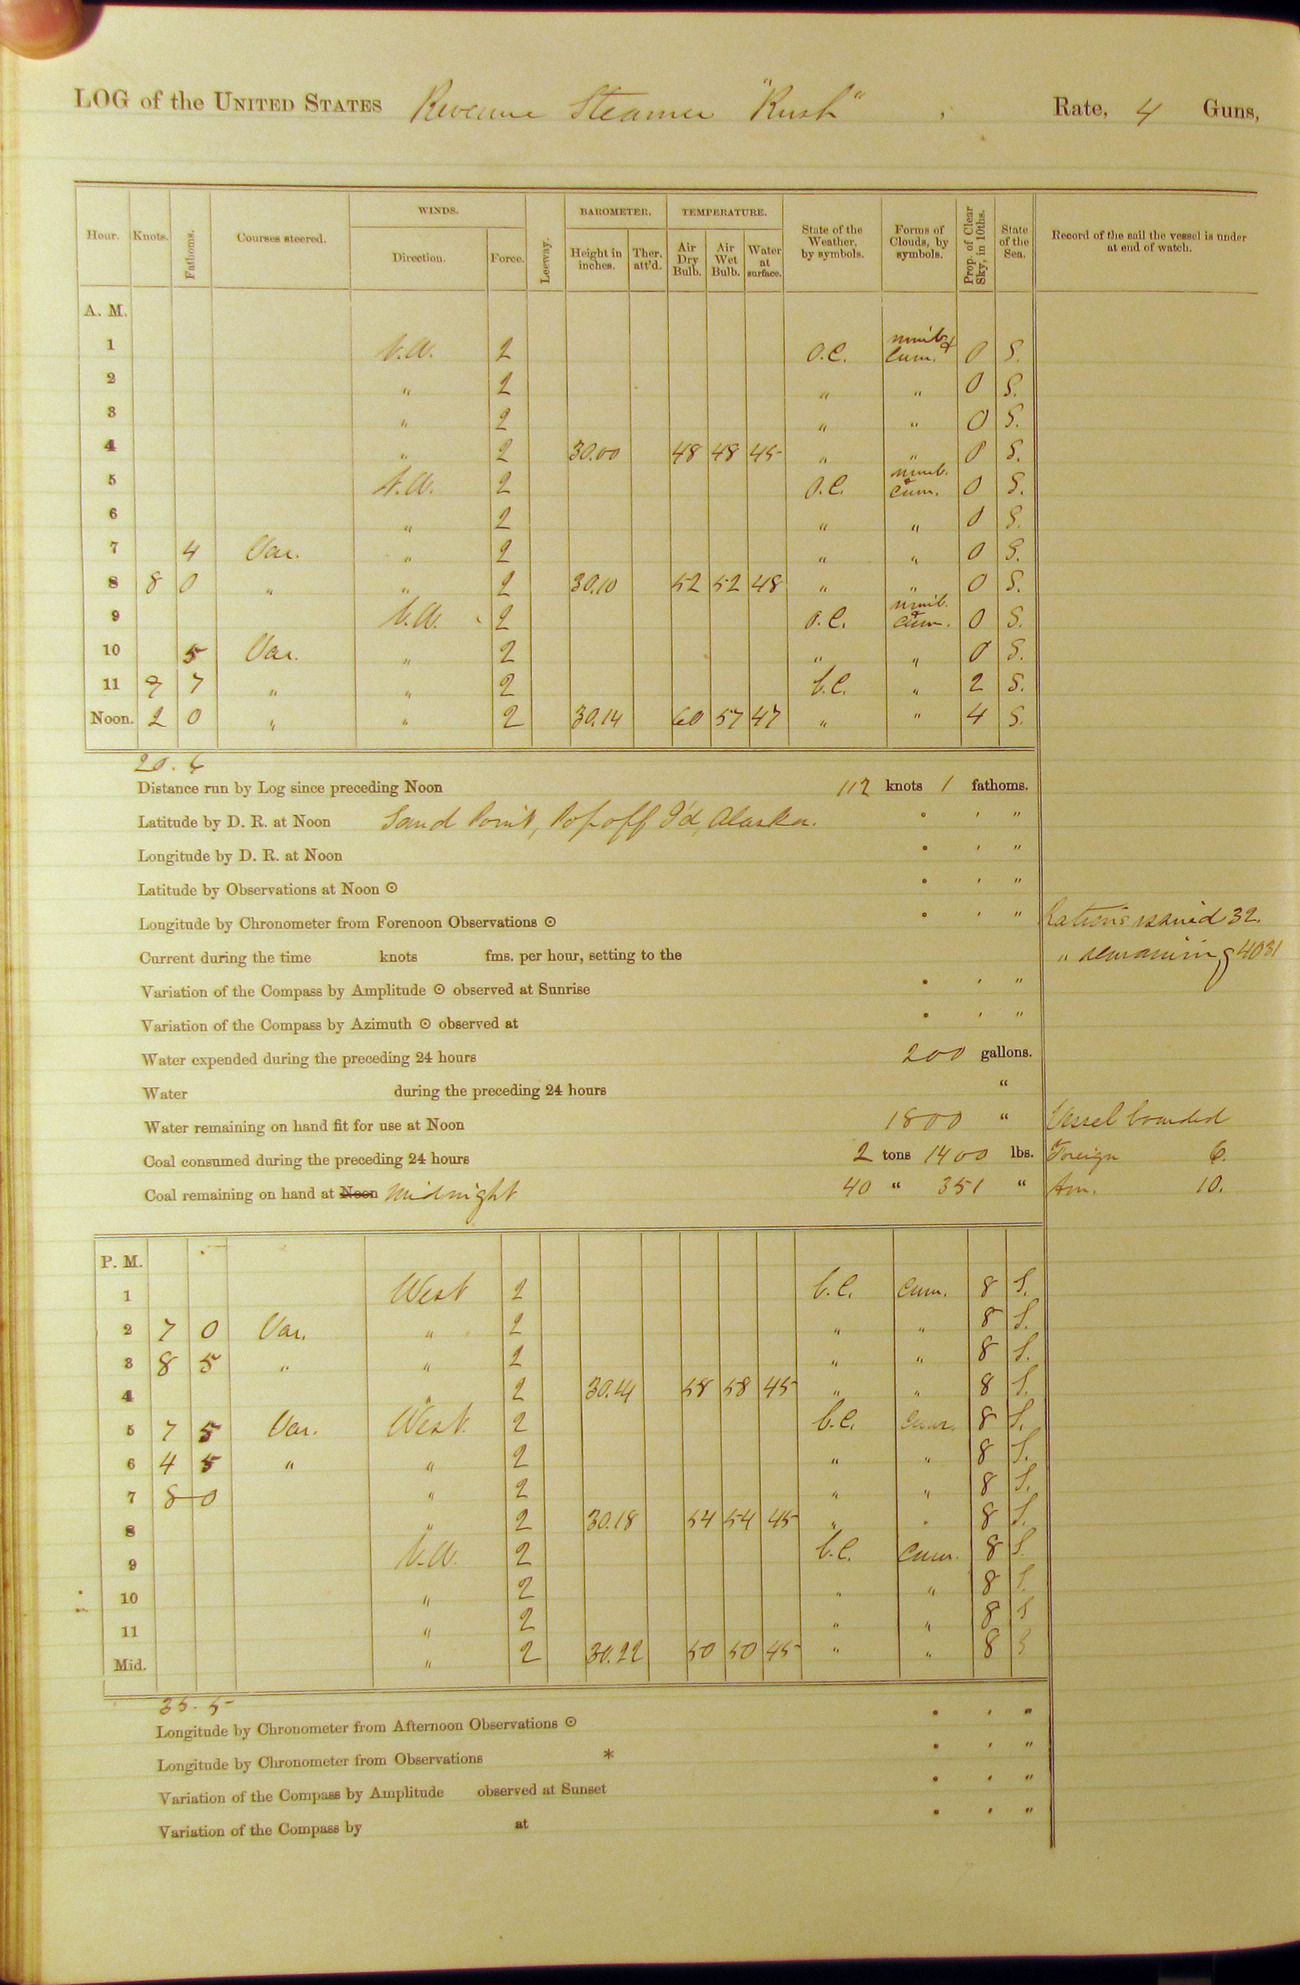 LOG of the UNITED STATES Revenue Steamer "Rush", Rate, 4 Guns,
WINDS. BAROMETER. TEMPERATURE.
Hour. Knots. Fathoms. Courses steered. Direction. Force. Leeway. Height in inches. Ther. att'd. Air Dry Bulb. Air Wet Bulb. Water at surface. State of the Weather, by symbols. Forms of Clouds, by symbols. Prop. of Clear Sky, in 10ths. State of the Sea. Record of the sail the vessel is under at end of watch.
A. M.
1 2 O.C. nimb. & Cum. 0 S.
2 " 2 " " 0 S.
3 " 2 " " 0 S.
4 " 2 30.00 48 48 45 " " 0 S.
5 2 O.C. nimb. & Cum. 0 S.
6 " 2 " " 0 S.
7 4 Var. " 2 " " 0 S.
8 8 0 " " 2 30.10 52 52 48 " " 0 S.
9 2 O.C. nimb. & Cum. 0 S.
10 5 Var. " 2 " " 0 S.
11 7 " " 2 b.C. " 2 S.
Noon. 2 0 " " 2 30.14 60 57 47 " " 4 S.
Distance run by Log since preceding Noon 112 knots 1 fathoms.
Latitude by D. R. at Noon Sand Point, Popoff I'd, Alaska. ° ' "
Longitude by D. R. at Noon ° ' "
Latitude by Observations at Noon ⊙ ° ' "
Longitude by Chronometer from Forenoon Observations ⊙ ° ' " Rations issued 32.
Current during the time knots fms. per hour, setting to the " remaining 4031
Variation of the Compass by Amplitude ⊙ observed at Sunrise ° ' "
Variation of the Compass by Azimuth ⊙ observed at ° ' "
Water expended during the preceding 24 hours 200 gallons.
Water during the preceding 24 hours "
Water remaining on hand fit for use at Noon 1800 " Vessel boarded
Coal consumed during the preceding 24 hours 2 tons 1400 lbs. Foreign 6.
Coal remaining on hand at Noon Midnight 40 " 351 " Am. 10.
P. M.
1 West 2 b.C. Cum. 8 S.
2 7 0 Var. " 2 " " 8 S.
3 8 5 " " 2 " " 8 S.
4 " 2 30.14 58 58 45 " " 8 S.
5 7 5 Var. West. 2 b.C. Cum. 8 S.
6 4 5 " " 2 " " 8 S.
7 8 0 " 2 " " 8 S.
8 " 2 30.18 54 54 45 " " 8 S.
9 2 b.C. Cum. 8 S.
10 " 2 " " 8 S.
11 " 2 " " 8 S
Mid. " 2 30.22 50 50 45 " " 8 S
35.5
Longitude by Chronometer from Afternoon Observations ⊙ ° ' "
Longitude by Chronometer from Observations * ° ' "
Variation of the Compass by Amplitude observed at Sunset ° ' "
Variation of the Compass by at ° ' "